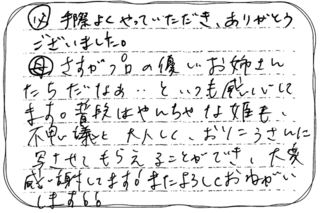 ㊛ 手際よくやっていただき、ありがとう
ございました。
㊊ さすがプロの優しいお姉さん
たちだなぁ‥といつも感じてい
ます。普段はやんちゃな姫も、
不思議と大人しく、おりこうさんに
写させてもらえることができ、大変
感謝してます。またよろしくおねがい
します。